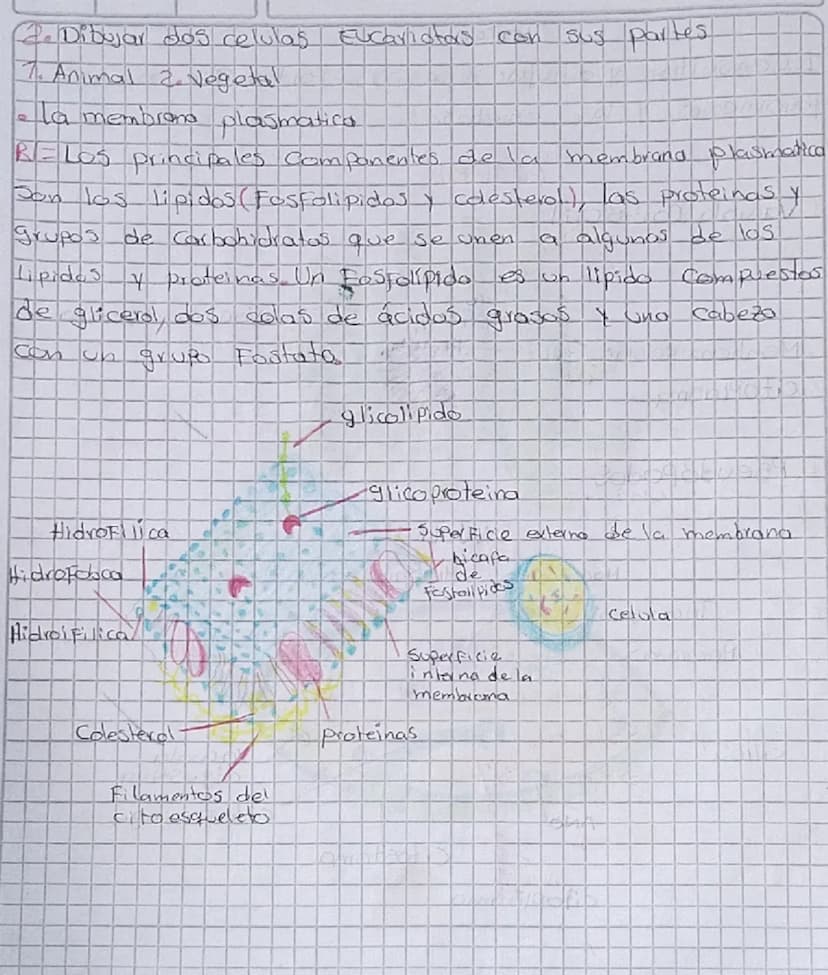 2. Dibujar dos celulas Eucariotas con sus partes
1. Animal 2. Vegetal
• la membrana plasmatica
R/= Los principales componentes de la membrana plasmatica
son los lipidos (Fosfolipidos y colesterol), las proteinas y
grupos de carbohidratos que se unen a algunos de los
Lipidos y proteinas. Un Fosfolipido es un lipido compuestos
de glicerol, dos colas de ácidos grasos y una cabeza
con un grupo Fosfato
glicolipido
glicoproteina
HidroFilica
SuperFicie externa de la membrana
HidroFobica
bicapa
de
Fosfolipidos
celula
HidroiFilica
SuperFicie
interna de la
membrana
Colesterol
proteinas
Filamentos del
citoesqueleto